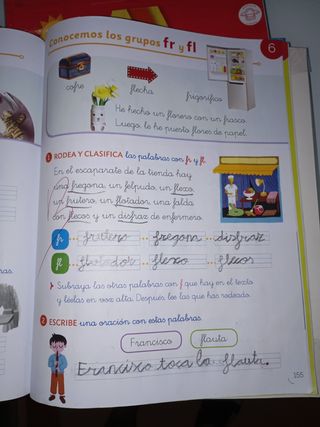 Conocemos los grupos fr y fl
6
cofre
flecha
frigorífico
He hecho un florero con un frasco.
Luego, le he puesto flores de papel.
1 RODEA Y CLASIFICA las palabras con fr y fl.
En el escaparate de la tienda hay
una fregona, un felpudo, un flexo,
un frutero, un flotador, una falda
con flecos y un disfraz de enfermero.
fr frutero fregona disfraz
fl flotador flexo flecos
Subraya las otras palabras con f que hay en el texto
y léelas en voz alta. Después, lee las que has rodeado.
2 ESCRIBE una oración con estas palabras.
Francisco flauta
Francisco toca la flauta.
155